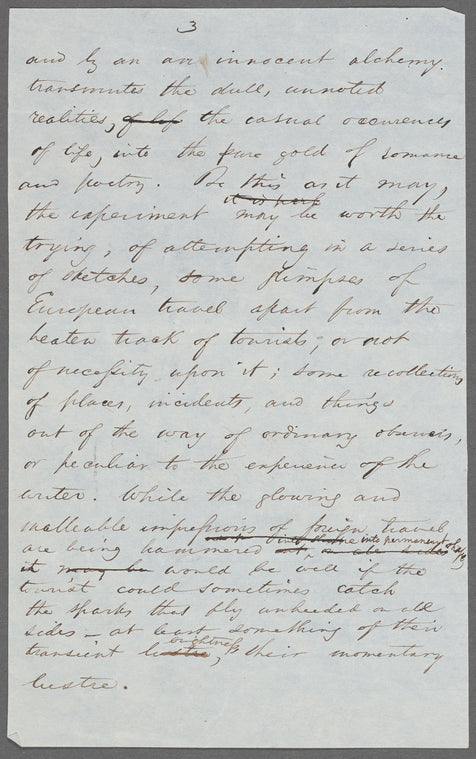 3
and by an an innocent alchemy.
transmutes the dull, unnoted
realities, of lif the casual occurences
of life, into the pure gold of romance
and poetry. Be this as it may,
it is perh
the experiment may be worth the
trying, of attempting in a series
of sketches, some glimpses of
European travel apart from the
beaten track of tourists; or not
of necessity upon it; some recollections
of places, incidents, and things
out of the way of ordinary observers,
or peculiar to the experience of the
writer. While the glowing and
malleable impressions of foreign travel
are being hammered into permanent shape,
it may be would be well if the
tourist could sometimes catch
the sparks that fly unheeded on all
sides – at least something of their
brightness
transient lustre, their momentary
lustre.